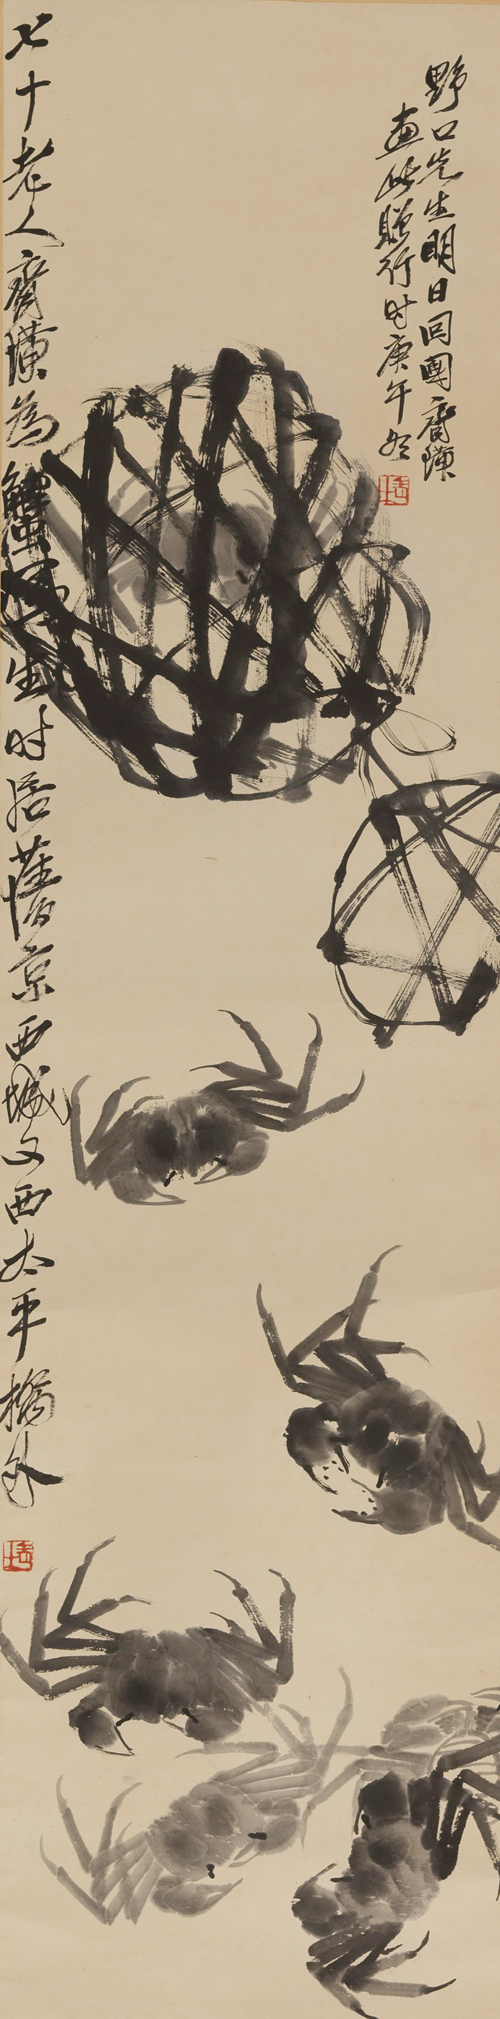 野口先生明日回國齊璜
畫此贈行时庚午冬
七十老人齊璜為蟹寫生时居舊京西城又西太平橋外